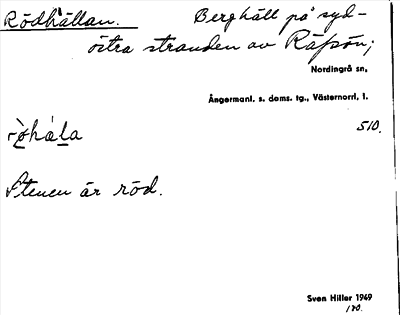 Rödhällan. Berghäll på syd-
östra stranden av Räfsön;
Nordingrå sn,
Ångermanl. s. doms. tg., Västernorrl. l.
510.
Stenen är röd.
Sven Hiller 1949